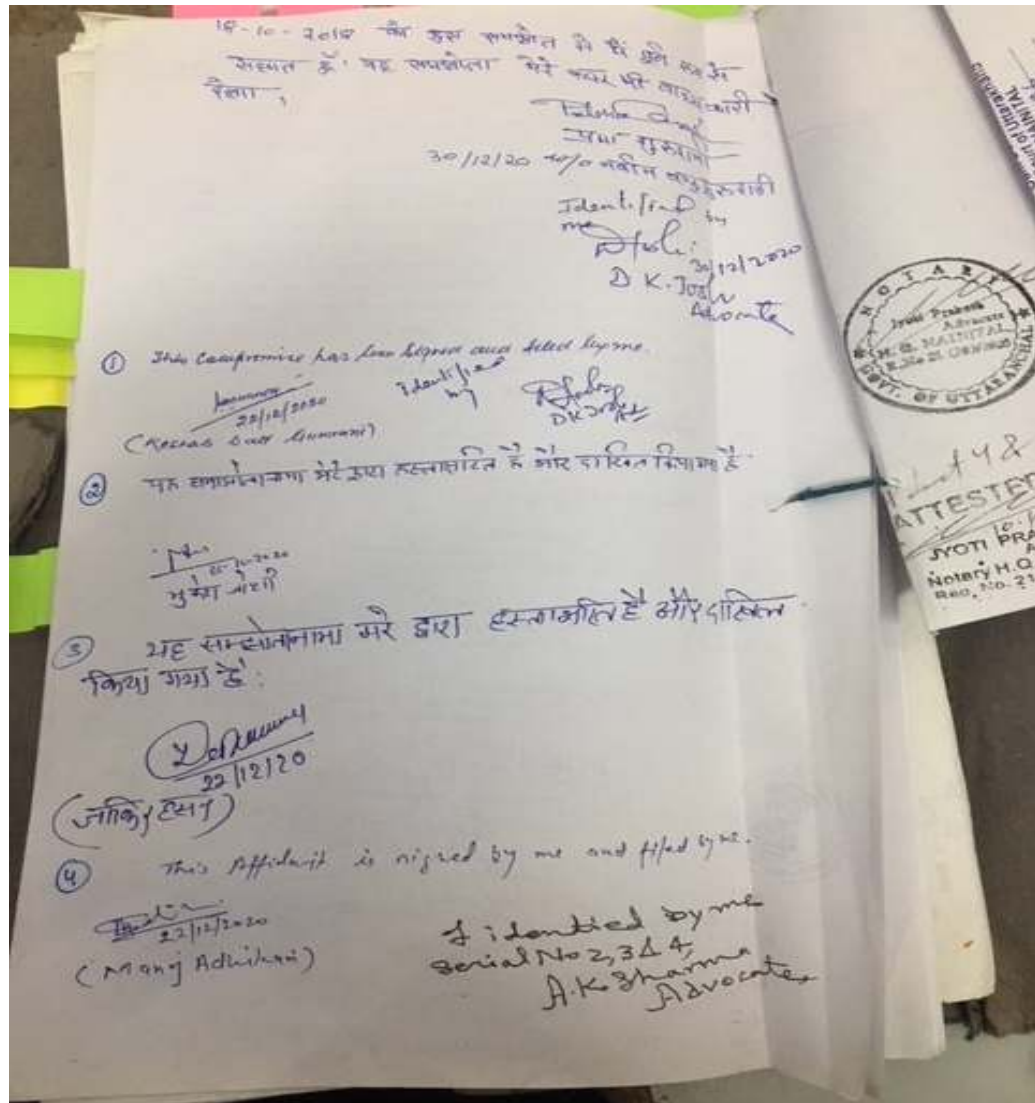 18-10-2018 के इस समझौते से मैं पूर्ण रूप से
सहमत हूँ। यह समझौता मेरे ऊपर भी बाध्यकारी
रहेगा,
30/12/20 w/o नवीन
Identified by
me
30/12/2020
D K. Joshi
Advocate
① This Compromise has been signed and filed by me.
Identified
by
22/12/2020
②
यह समझौतानामा मेरे द्वारा हस्ताक्षरित है और दाखिल किया गया है
मुकेश जोशी
③ यह समझौतानामा मेरे द्वारा हस्ताक्षरित है और दाखिल
किया गया है:
22/12/20
(जाकिर हसन)
④ This Affidavit is signed by me and filed by me.
22/12/2020
(Manoj Adhikari)
I identied by me
Serial No 2, 3 & 4,
A.K. Sharma
Advocate
NOTARY
Jyoti Prakash
Advocate
H. Q. NAINITAL
GOVT. OF UTTARANCHAL
ATTESTED
JYOTI PRA
Notary H.Q
Reg. No. 21